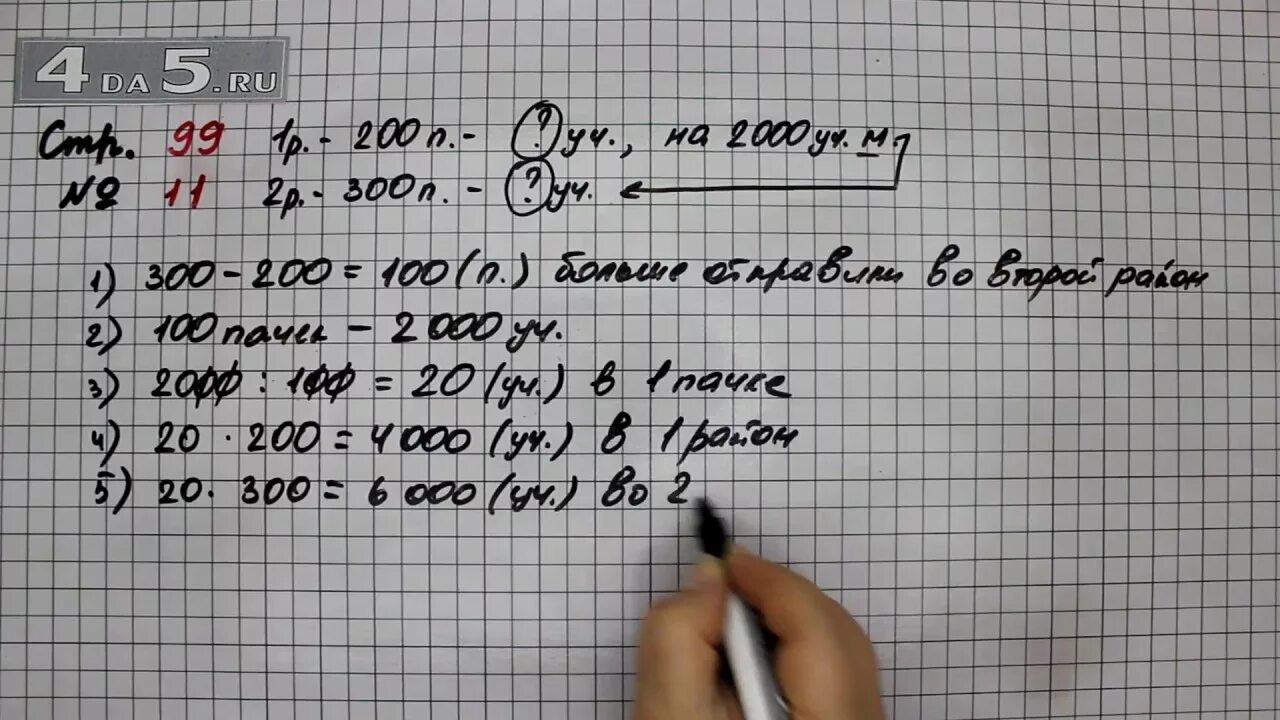 4DA5.RU
Стр. 99 1р. - 200 п. - ? уч., на 2000 уч. м
№ 11 2р. - 300 п. - ? уч.
1) 300 - 200 = 100 (п.) больше отправили во второй район
2) 100 пачек - 2 000 уч.
3) 2000 : 100 = 20 (уч.) в 1 пачке
4) 20 · 200 = 4 000 (уч.) в 1 район
5) 20 · 300 = 6 000 (уч.) во 2